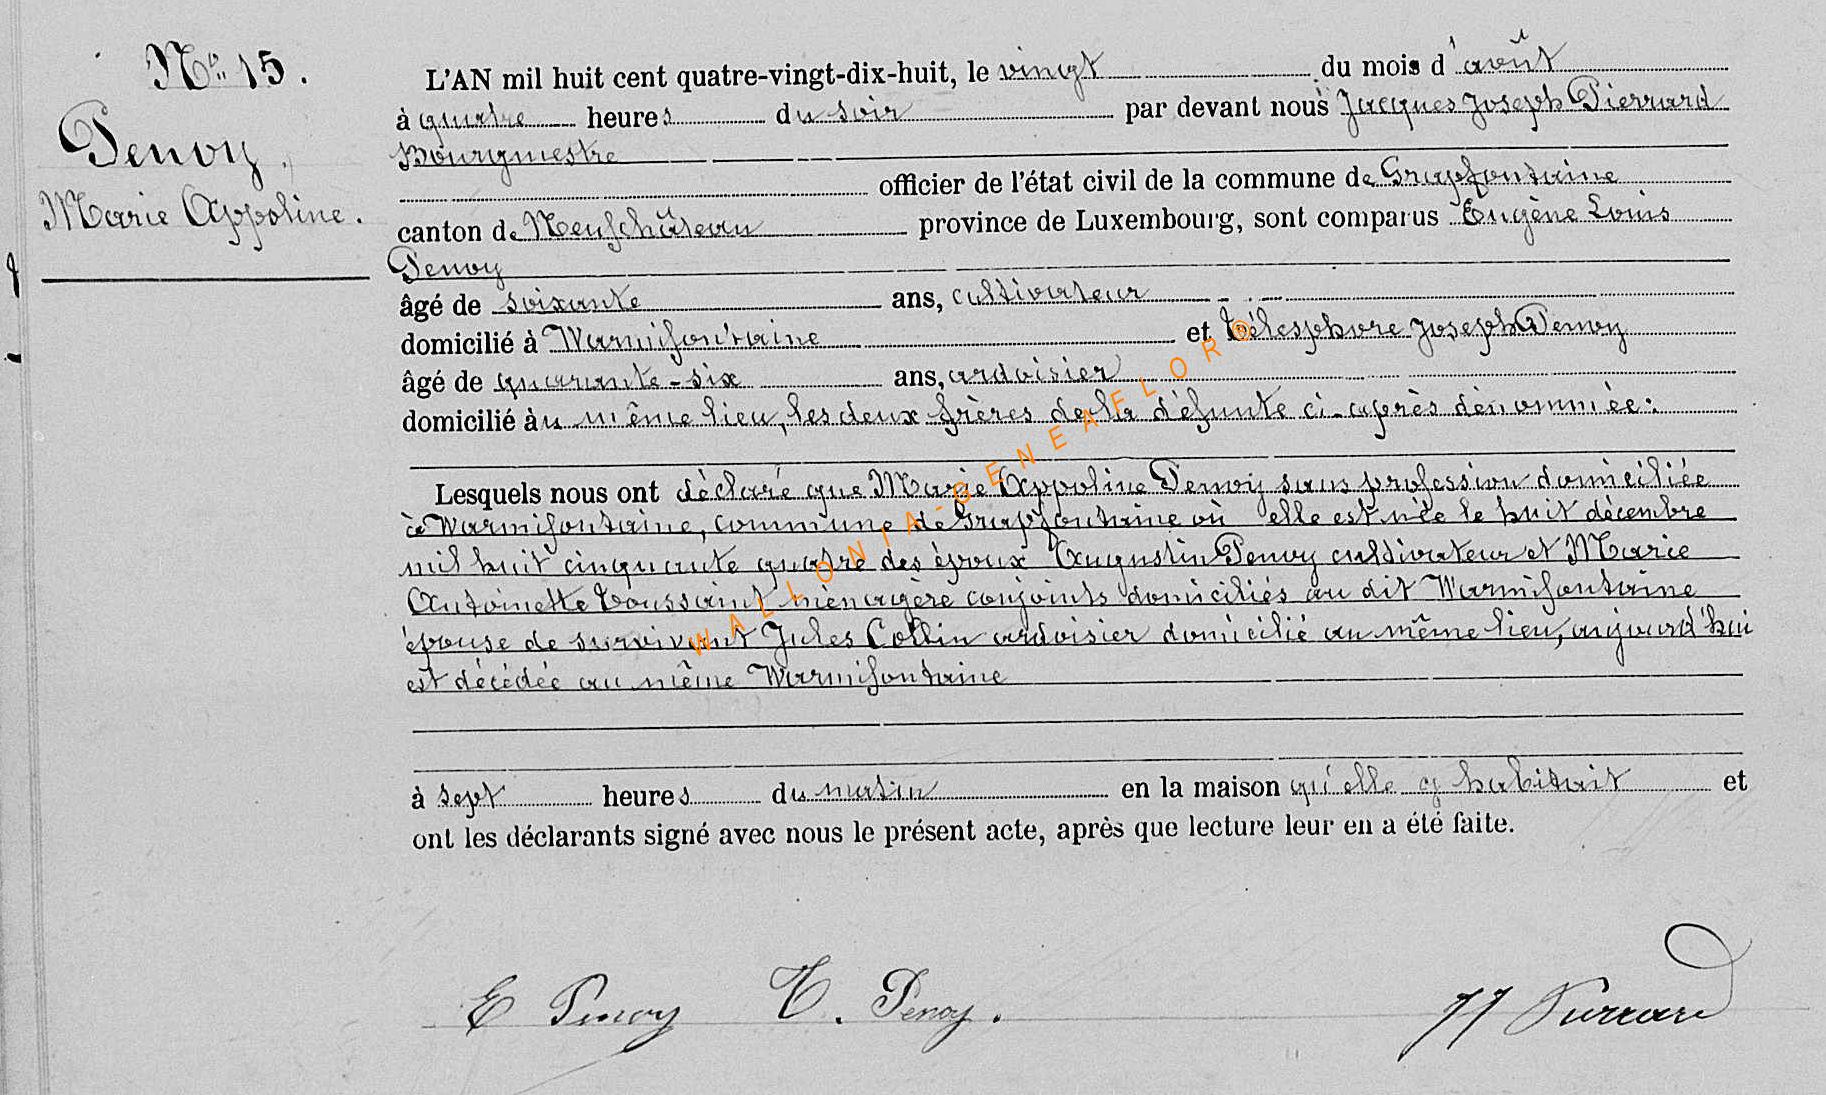 No 15.
Penoy,
Marie Appoline.
L'AN mil huit cent quatre-vingt-dix-huit, le vingt du mois d'août
à quatre heures du soir par devant nous Jacques Joseph Pierrard
Bourgmestre
officier de l'état civil de la commune de Grapfontaine
canton de Neufchâteau province de Luxembourg, sont comparus Eugène Louis
Penoy
âgé de soixante ans, cultivateur
domicilié à Warmifontaine et Télesphore Joseph Penoy
âgé de quarante-six ans, ardoisier
domicilié au même lieu, les deux frères de la défunte ci-après dénommée:
Lesquels nous ont déclaré que Marie Appoline Penoy sans profession domiciliée
à Warmifontaine, commune de Grapfontaine où elle est née le huit décembre
mil huit cinquante quatre des époux Augustin Penoy cultivateur et Marie
Antoinette Toussaint ménagère conjoints domiciliés au dit Warmifontaine
épouse de survivant Jules Collin ardoisier domicilié au même lieu, aujourd'hui
est décédée au même Warmifontaine
à sept heures du matin en la maison qu'elle y habitait et
ont les déclarants signé avec nous le présent acte, après que lecture leur en a été faite.
E Penoy T. Penoy. JJ Pierrard
WALLONIA-GENEAFLOR©